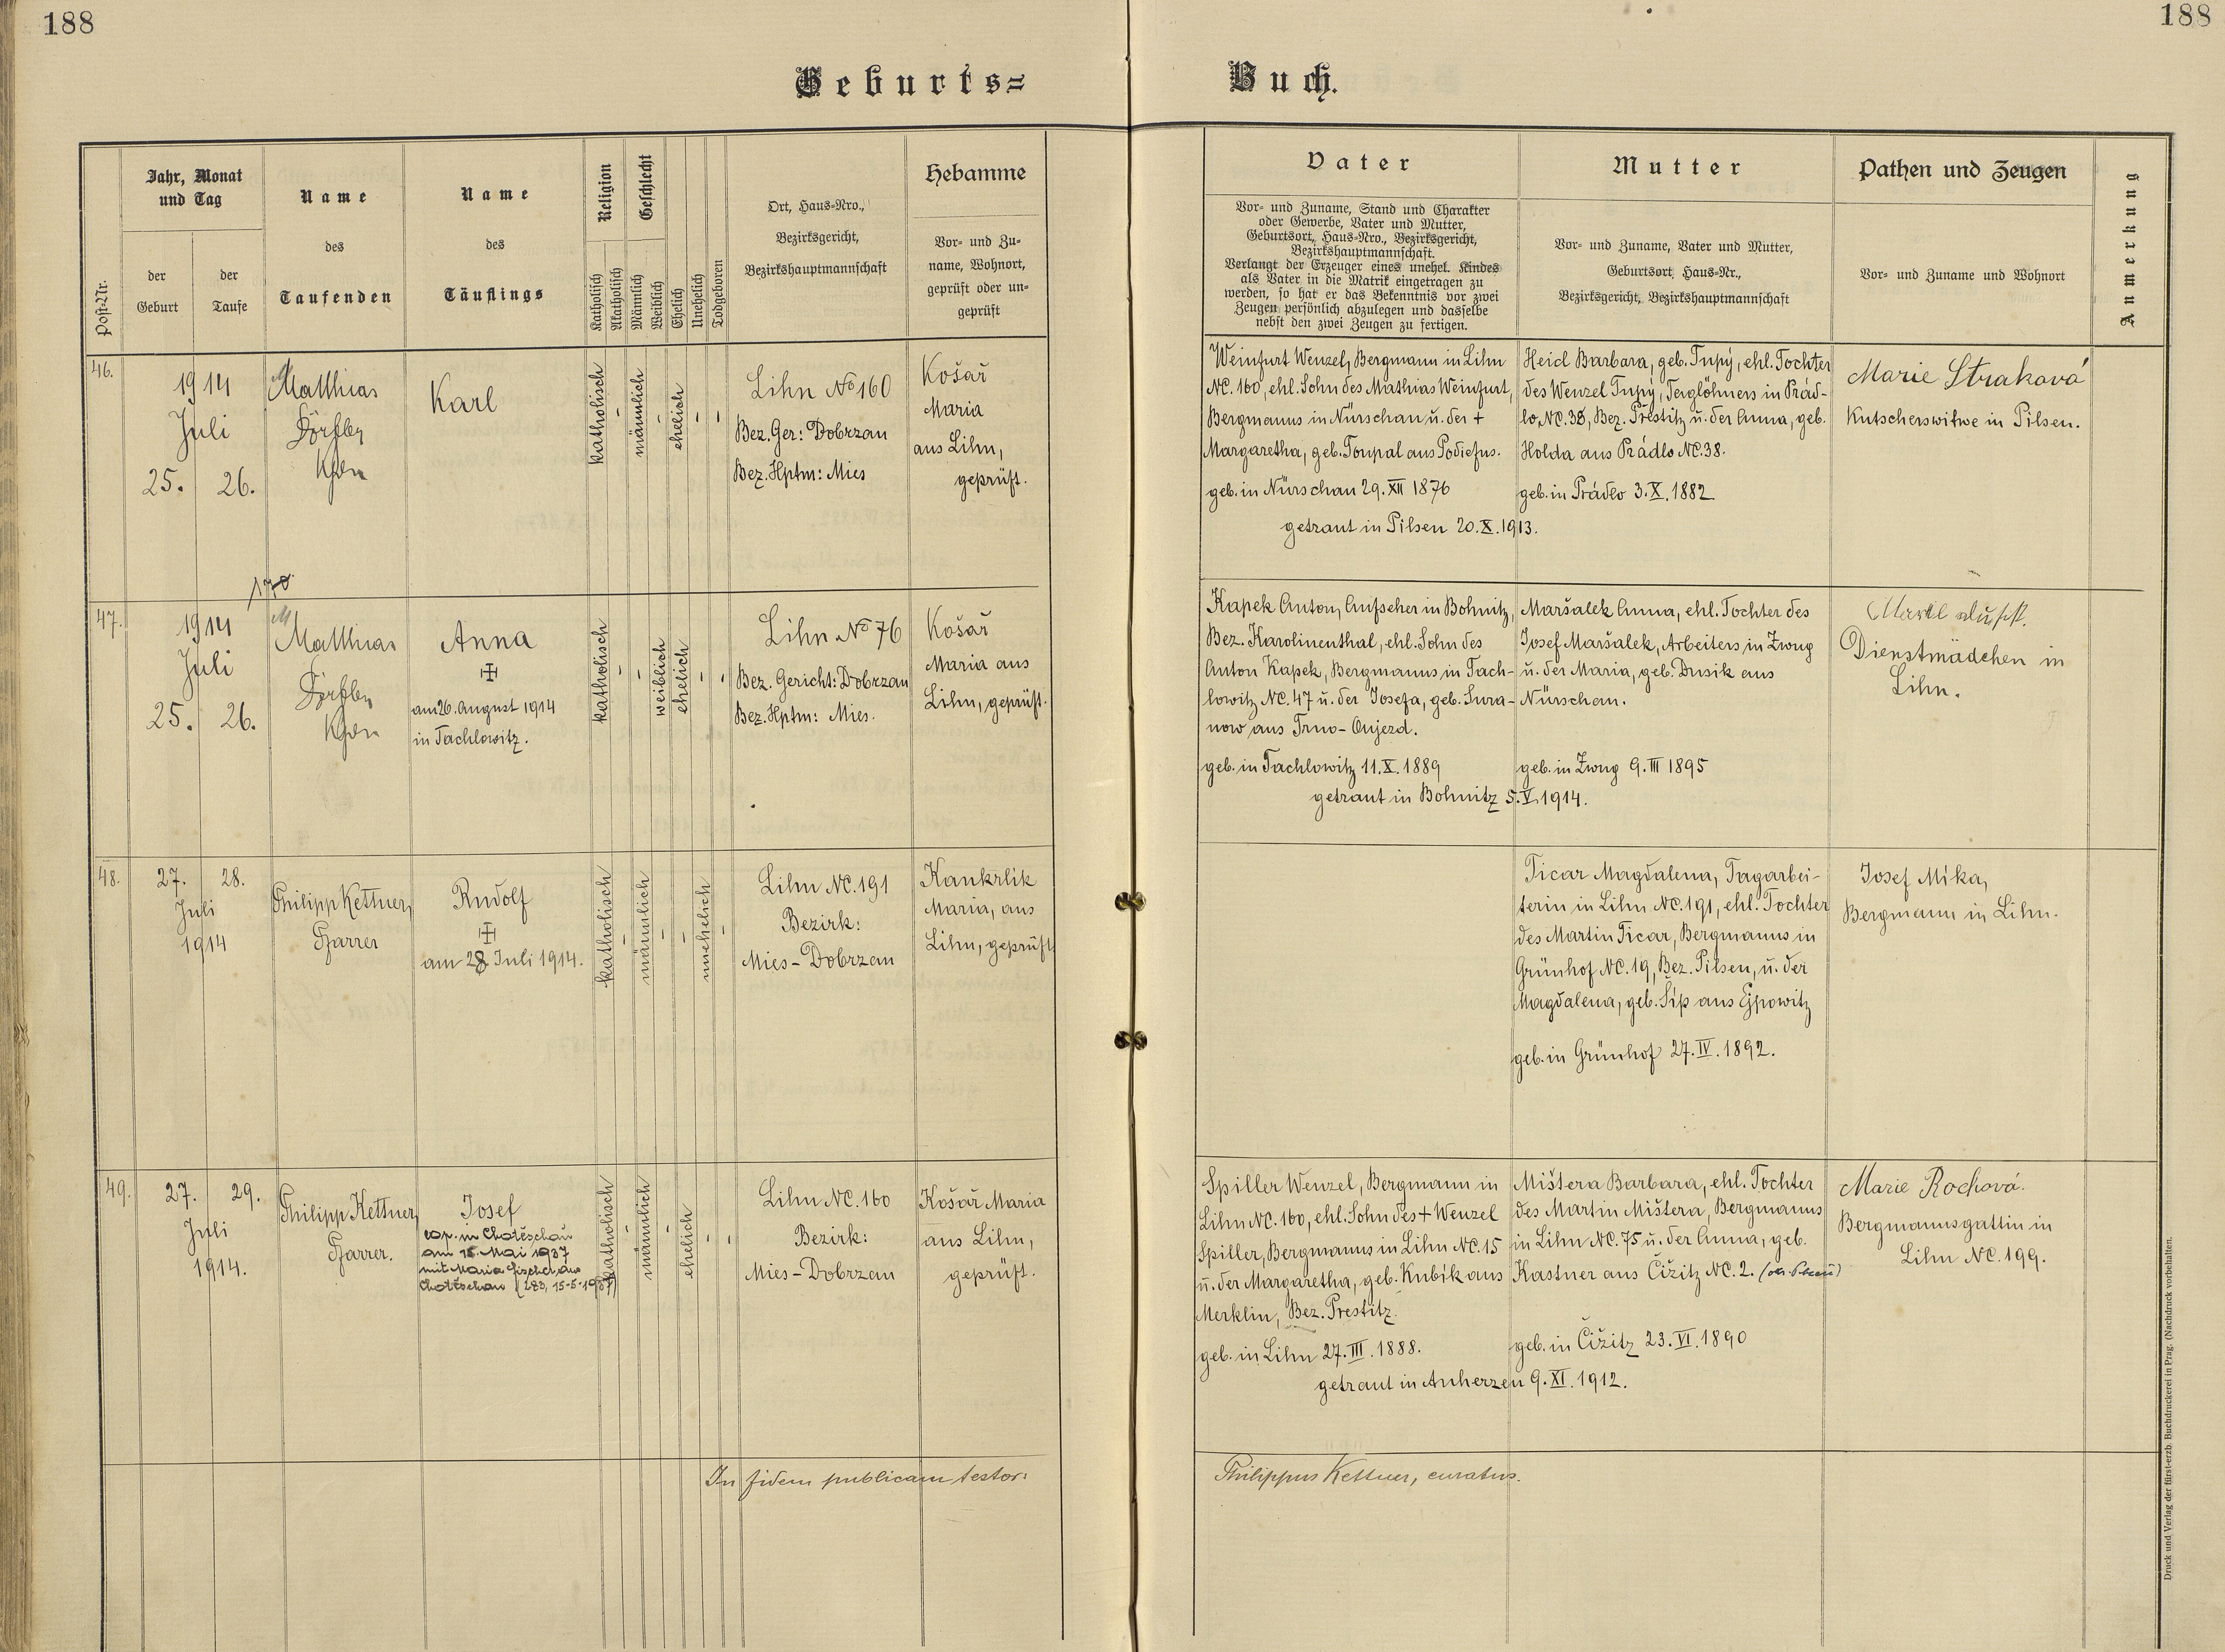 188
188
Geburts=
Buch.
Jahr, Monat
und Tag
der
Geburt
der
Taufe
Post-Nr.
Name
des
Taufenden
Name
des
Täuflings
Religion
Katholisch
Akatholisch
Geschlecht
Männlich
Weiblich
Ehelich
Unehelich
Todgeboren
Ort, Haus-Nro.,
Bezirksgericht,
Bezirkshauptmannschaft
Hebamme
Vor- und Zu-
name, Wohnort,
geprüft oder un-
geprüft
Vater
Vor- und Zuname, Stand und Charakter
oder Gewerbe, Vater und Mutter,
Geburtsort, Haus-Nro., Bezirksgericht,
Bezirkshauptmannschaft.
Verlangt der Erzeuger eines unehel. Kindes
als Vater in die Matrik eingetragen zu
werden, so hat er das Bekenntnis vor zwei
Zeugen persönlich abzulegen und dasselbe
nebst den zwei Zeugen zu fertigen.
Mutter
Vor- und Zuname, Vater und Mutter,
Geburtsort, Haus-Nr.,
Bezirksgericht, Bezirkshauptmannschaft
Pathen und Zeugen
Vor- und Zuname und Wohnort
Anmerkung
46.
1914
Juli
25. 26.
Matthias
Dörfler
Karl
katholisch
-
männlich
-
ehelich
-
-
Lihn No 160
Bez. Ger: Dobrzan
Bez. Hptm: Mies
Košař
Maria
aus Lihn,
geprüft.
Weinfurt Wenzel, Bergmann in Lihn
NC. 160, ehl. Sohn des Mathias Weinfurt,
Bergmanns in Nürschau u. der +
Margaretha, geb. Toupal aus
geb. in Nürschau 29. XII 1876
Heid Barbara, geb. Tupý, ehl. Tochter
des Wenzel Tupý, in Prád-
lo, NC. 38, Bez. Přestitz u. der Anna, geb.
Holda aus Prádlo NC. 38.
geb. in Prádlo 3. X. 1882
getraut in Pilsen 20. X. 1913.
Marie Straková
Kutscherswitwe in Pilsen.
170
47.
1914
Juli
25. 26.
Matthias
Dörfler
Anna
am 26. August 1914
in Tachlowitz.
katholisch
-
-
weiblich
ehelich
-
-
Lihn No 76
Bez. Gericht: Dobrzan
Bez. Hptm: Mies.
Košař
Maria aus
Lihn, geprüft.
Kapek Anton, Aufseher in Bohnitz,
Bez. Karolinenthal, ehl. Sohn des
Anton Kapek, Bergmanns in Tach-
lowitz NC. 47 u. der Josefa, geb. Sura-
now aus Trno-Oujezd.
geb. in Tachlowitz 11. X. 1889
Maršalek Anna, ehl. Tochter des
Josef Maršalek, Arbeiters in Zwug
u. der Maria, geb. Dusik aus
Nürschau.
geb. in Zwug 9. III 1895
getraut in Bohnitz 5. V. 1914.
Dienstmädchen in
Lihn.
48.
27. 28.
Juli
1914
Philipp Kettner,
Pfarrer
Rudolf
am 28 Juli 1914.
katholisch
-
männlich
-
-
unehelich
-
Lihn NC. 191
Bezirk:
Mies-Dobrzan
Kankrlik
Maria, aus
Lihn, geprüft
Ticar Magdalena, Tagarbei-
terin in Lihn NC. 191, ehl. Tochter
des Martin Ticar, Bergmanns in
Grünhof NC. 19, Bez. Pilsen, u. der
Magdalena, geb. Šíp aus Ejpowitz
geb. in Grünhof 27. IV. 1892.
Josef Míka,
Bergmann in Lihn.
49.
27. 29.
Juli
1914.
Philipp Kettner,
Pfarrer.
Josef
cop. in Chotěschau
am 15. Mai 1937
mit Maria Fischer aus
Chotěschau (283, 15-5-1937)
katholisch
-
männlich
-
ehelich
-
-
Lihn NC. 160
Bezirk:
Mies-Dobrzan
Košař Maria
aus Lihn,
geprüft.
Spiller Wenzel, Bergmann in
Lihn NC. 160, ehl. Sohn des + Wenzel
Spiller, Bergmanns in Lihn NC. 15
u. der Margaretha, geb. Kubík aus
Merklin, Bez. Prestitz.
geb. in Lihn 27. III. 1888.
Mištera Barbara, ehl. Tochter
des Martin Mištera, Bergmanns
in Lihn NC. 75 u. der Anna, geb.
Kastner aus Čižitz NC. 2.
geb. in Čižitz 23. VI. 1890
getraut in Auherzen 9. XI. 1912.
Marie Rochová.
Bergmannsgattin in
Lihn NC. 199.
In fidem publicam testor:
Philippus Kettner, curatus.
Druck und Verlag der fürst-erzb. Buchdruckerei in Prag. (Nachdruck vorbehalten.